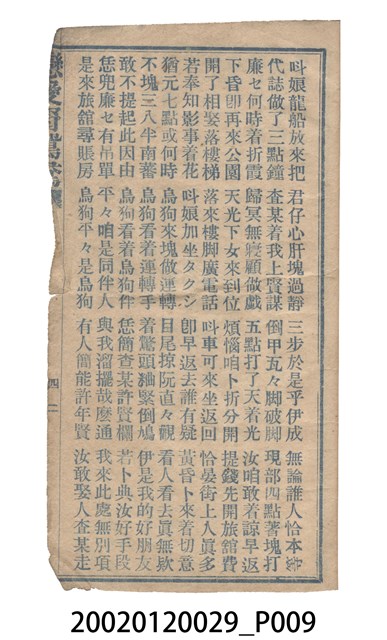 叫娘龍船放來把 君仔心肝塊過靜 三步於是乎伊成 無論誰人恰本
代誌做了三點鐘 查某着我上賢謀 倒甲瓦々脚破脚 現部四點著塊打
廉セ何時着折霞 歸冥無寢顧做戲 五點打了天着光 汝咱敢着諒早返
下昏卽再來公園 天光下女來到位 煩惱咱卜折分開 提錢先開旅館費
開了相娶落樓梯 落來樓脚廣電話 叫車可來坐返回 恰晏街上人眞多
若奉知影事着花 叫娘加坐タクシ 卽早返去誰有疑 黃昏卜來着切意
猶元七點或何時 烏狗來塊做運轉 目尾掠阮直々觀 看人看去眞無款
不塊三八半南蕃 烏狗看着運轉手 着驚頭緊倒鳩 伊是我的好朋友
敢不提起此因由 烏狗看着烏狗伴 恁簡查某許賢欄 若卜與汝好手段
恁兜廉セ有吊單 平々咱是同伴人 與我溜擺哉麼通 我來此處無別項
是來旅館尋賬房 烏狗平々是烏狗 有人簡能許年賢 汝敢娶人查某走
20020120029_P009